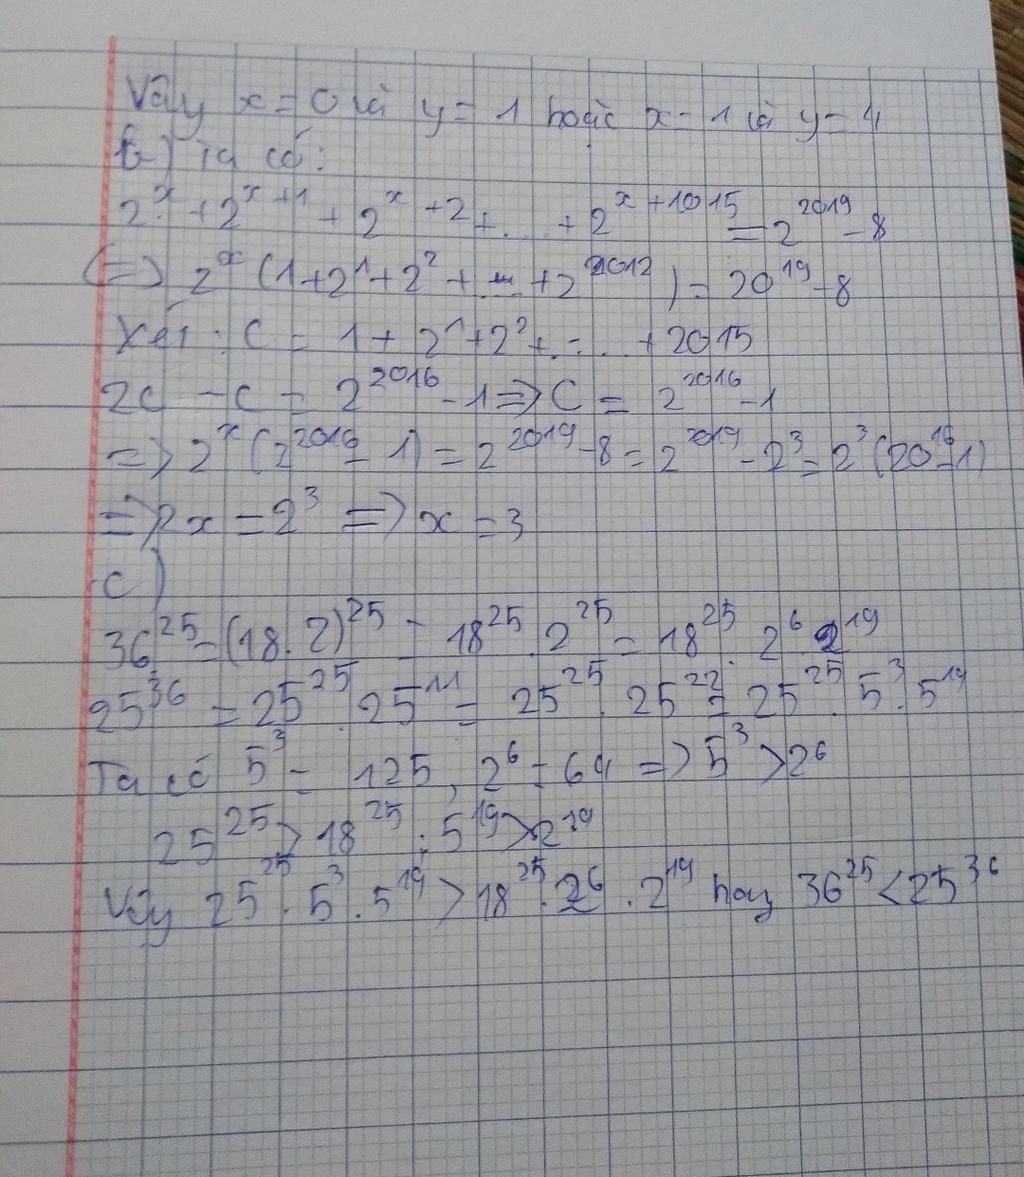 Vậy x = 0 và y = 1 hoặc x = 1 và y = 4
b) Ta có:
2^x + 2^{x+1} + 2^{x+2} + ... + 2^{x+1015} = 2^{2019} - 8
(=) 2^x (1 + 2^1 + 2^2 + ... + 2^{2012}) = 20^{19} - 8
Xét: C = 1 + 2^1 + 2^2 + ... + 2015
2C - C = 2^{2016} - 1 => C = 2^{2016} - 1
=> 2^x (2^{2016} - 1) = 2^{2019} - 8 = 2^{2019} - 2^3 = 2^3 (20^{16} - 1)
=> 2x = 2^3 => x = 3
c)
36^{25} = (18.2)^{25} = 18^{25}.2^{25} = 18^{25}.2^6.2^{19}
25^{36} = 25^{25}.25^{11} = 25^{25}.25^{22} = 25^{25}.5^3.5^{19}
Ta có 5^3 = 125, 2^6 = 64 => 5^3 > 2^6
25^{25} > 18^{25}; 5^{19} > 2^{19}
Vậy 25^{25}.5^3.5^{19} > 18^{25}.2^6.2^{19} hay 36^{25} < 25^{36}